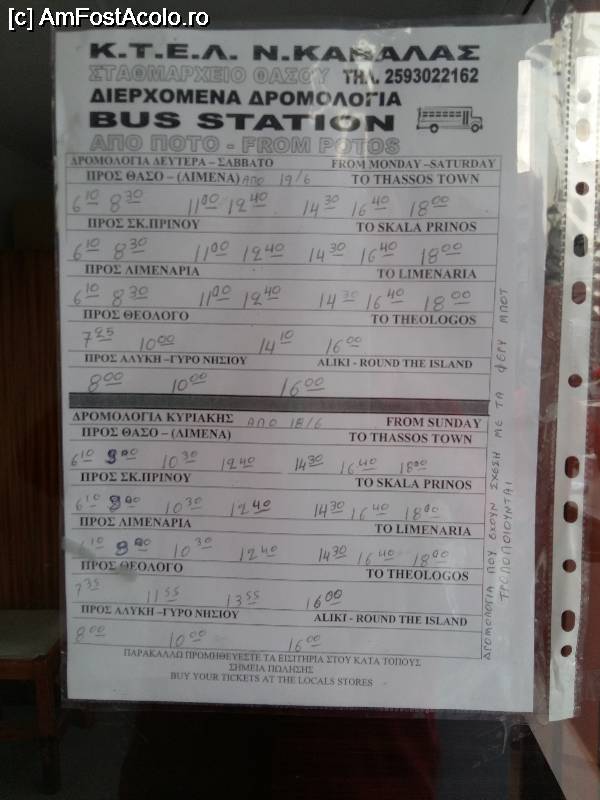 [c] AmFostAcolo.ro
Κ.Τ.Ε.Λ. Ν.ΚΑΒΑΛΑΣ
ΣΤΑΘΜΑΡΧΕΙΟ ΘΑΣΟΥ ΤΗΛ. 2593022162
ΔΙΕΡΧΟΜΕΝΑ ΔΡΟΜΟΛΟΓΙΑ
BUS STATION
ΑΠΟ ΠΟΤΟ - FROM POTOS
ΔΡΟΜΟΛΟΓΙΑ ΔΕΥΤΕΡΑ – ΣΑΒΒΑΤΟ FROM MONDAY –SATURDAY
ΠΡΟΣ ΘΑΣΟ – (ΛΙΜΕΝΑ) ΑΠΟ 19/6 TO THASSOS TOWN
6 10 8 30 11 00 12 40 14 30 16 40 18 00
ΠΡΟΣ ΣΚ.ΠΡΙΝΟΥ TO SKALA PRINOS
6 10 8 30 11 00 12 40 14 30 16 40 18 00
ΠΡΟΣ ΛΙΜΕΝΑΡΙΑ TO LIMENARIA
6 10 8 30 11 00 12 40 14 30 16 40 18 00
ΠΡΟΣ ΘΕΟΛΟΓΟ TO THEOLOGOS
7 25 10 00 14 10 16 00
ΠΡΟΣ ΑΛΥΚΗ –ΓΥΡΟ ΝΗΣΙΟΥ ALIKI - ROUND THE ISLAND
8 00 10 00 16 00
ΔΡΟΜΟΛΟΓΙΑ ΚΥΡΙΑΚΗΣ ΑΠΟ 18/6 FROM SUNDAY
ΠΡΟΣ ΘΑΣΟ – (ΛΙΜΕΝΑ) TO THASSOS TOWN
6 10 9 00 10 30 12 40 14 30 16 40 18 00
ΠΡΟΣ ΣΚ.ΠΡΙΝΟΥ TO SKALA PRINOS
6 10 10 30 12 40 14 30 16 40 18 00
ΠΡΟΣ ΛΙΜΕΝΑΡΙΑ TO LIMENARIA
10 10 30 12 40 14 30 16 40 18 00
ΠΡΟΣ ΘΕΟΛΟΓΟ TO THEOLOGOS
7 35 11 55 13 55 16 00
ΠΡΟΣ ΑΛΥΚΗ –ΓΥΡΟ ΝΗΣΙΟΥ ALIKI - ROUND THE ISLAND
8 00 10 00 16 00
ΠΑΡΑΚΑΛΛΩ ΠΡΟΜΗΘΕΥΕΣΤΕ ΤΑ ΕΙΣΙΤΗΡΙΑ ΣΤΟΥ ΚΑΤΑ ΤΟΠΟΥΣ
ΣΗΜΕΙΑ ΠΩΛΗΣΗΣ
BUY YOUR TICKETS AT THE LOCALS STORES
ΔΡΟΜΟΛΟΓΙΑ ΠΟΥ ΕΧΟΥΝ ΣΧΕΣΗ ΜΕ ΤΑ ΦΕΡΥ ΜΠΟΤ
ΤΡΟΠΟΠΟΙΟΥΝΤΑΙ